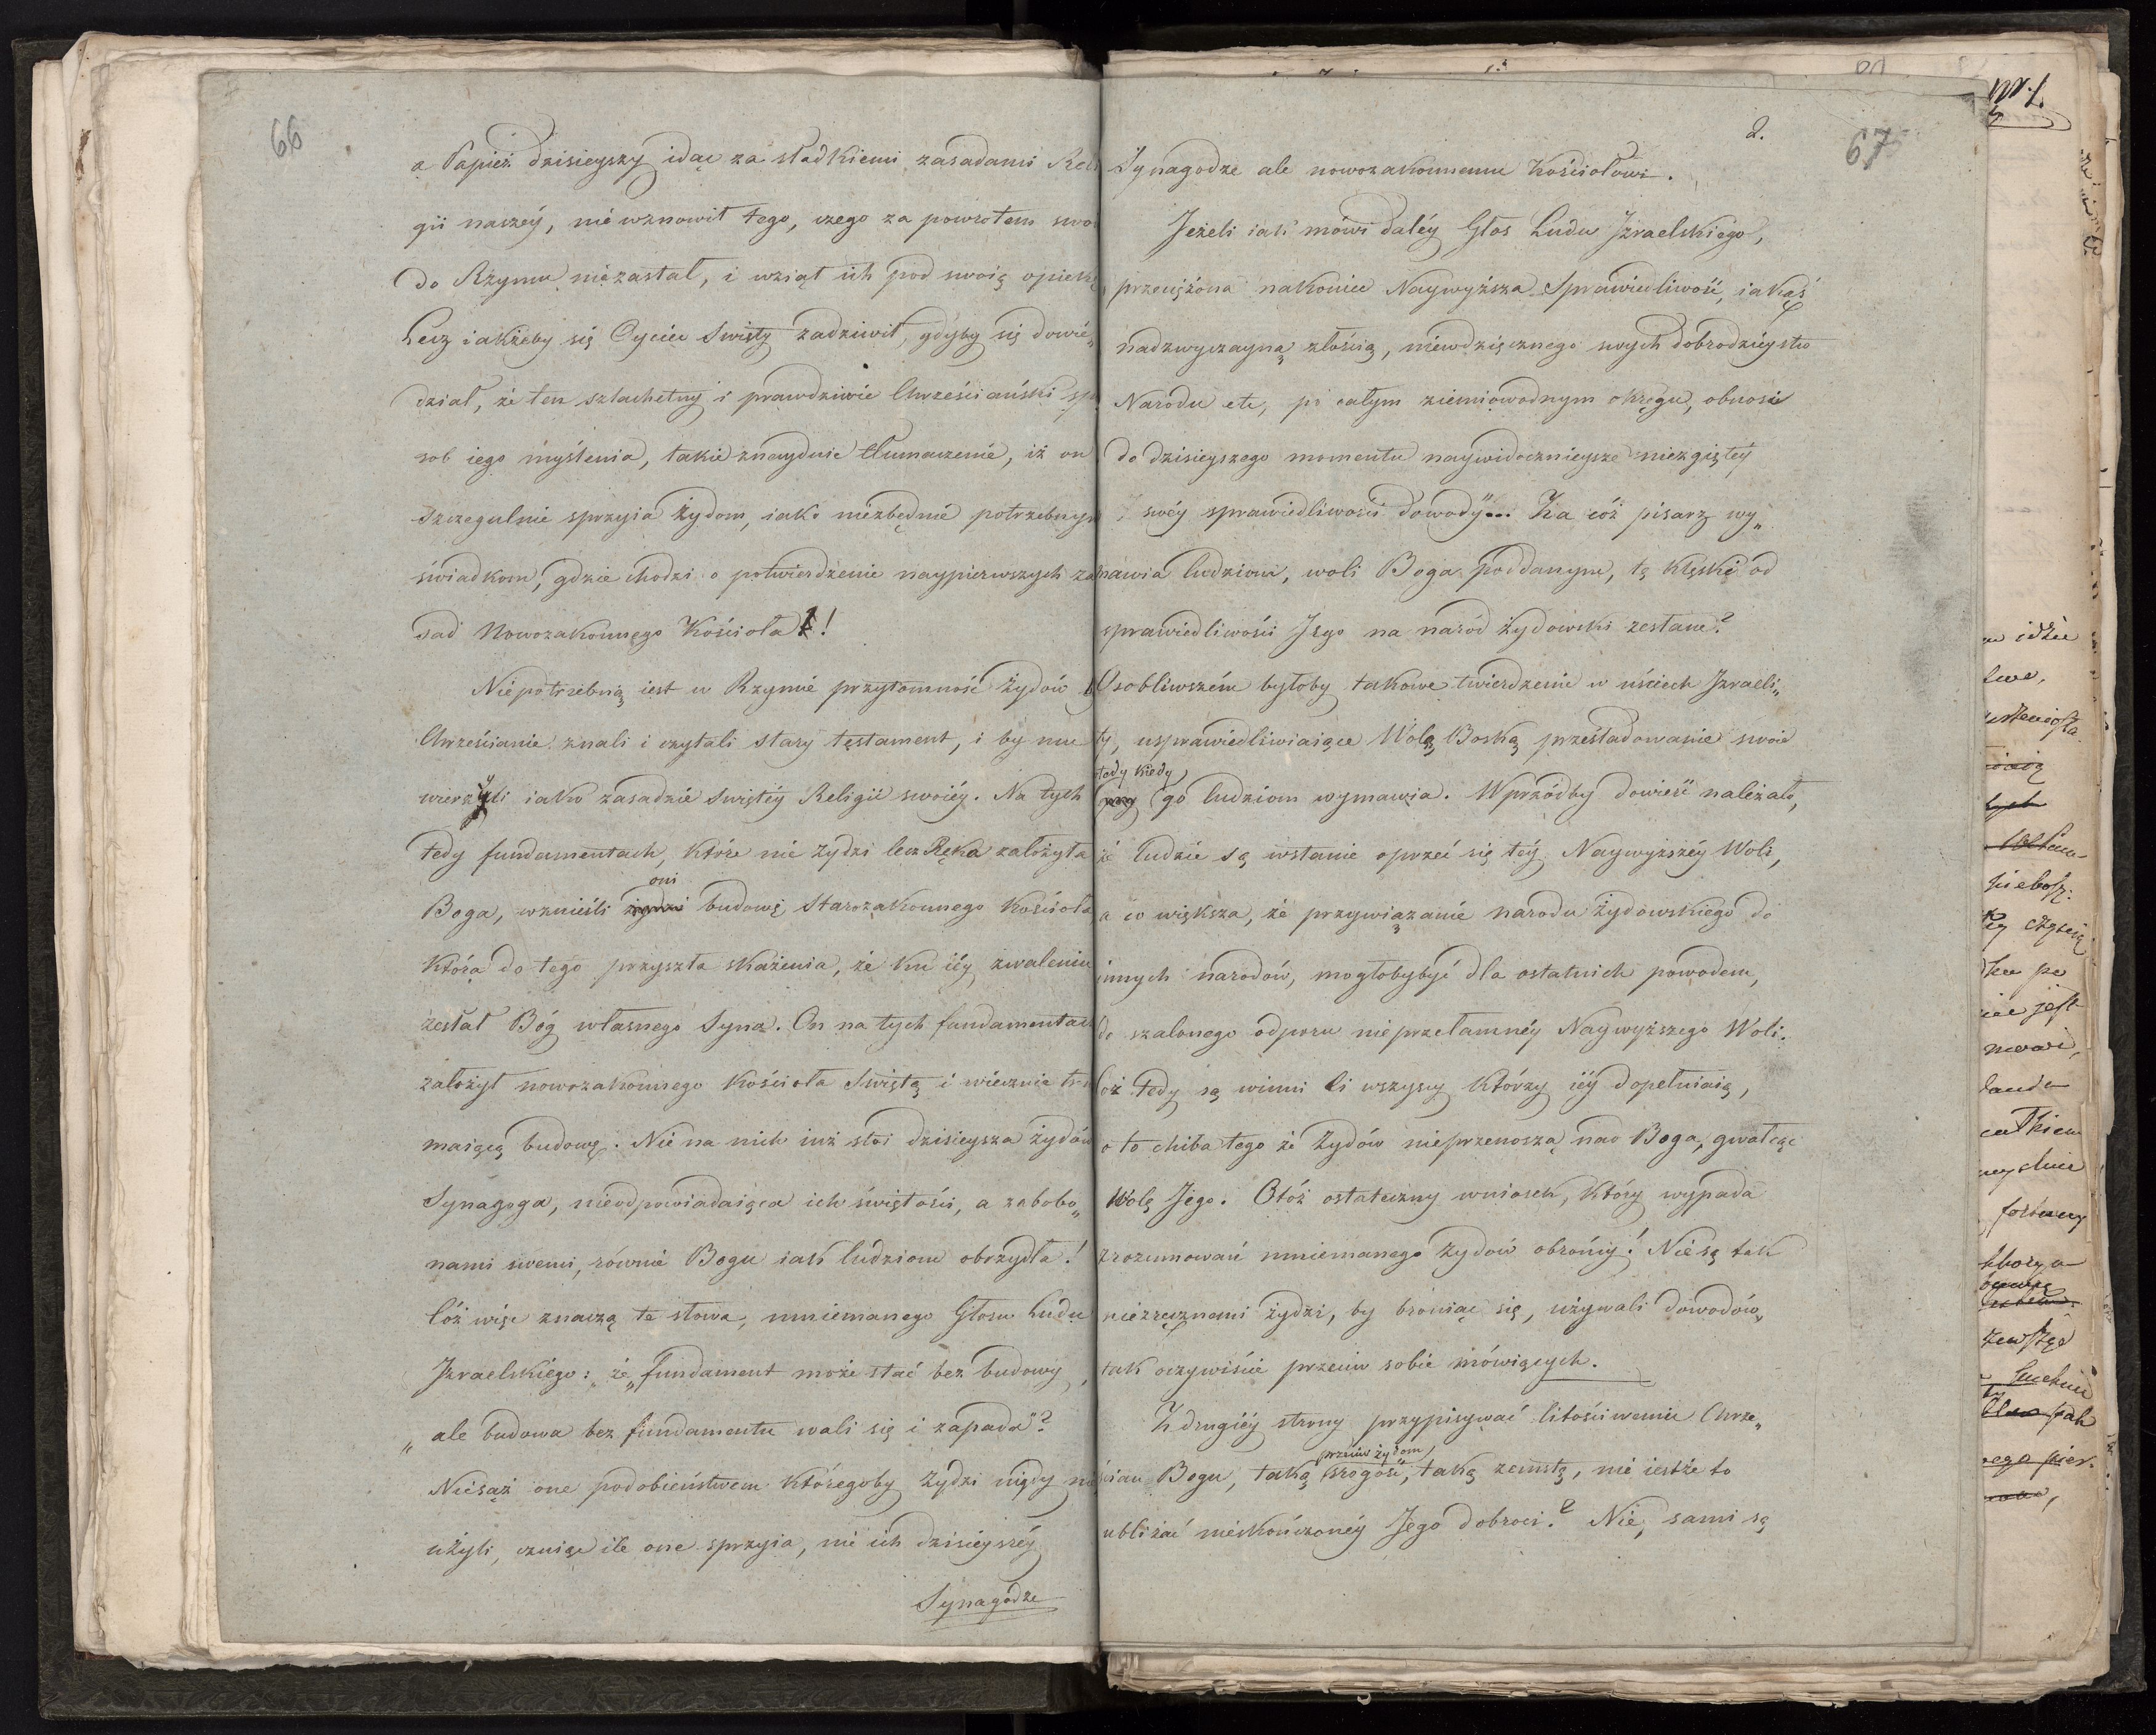 66
a Papież dzisieyszy idąc za słodkiemi zasadami Reli
gii naszéy, nie wznowił tego, czego za powrotem swo
do Rzymu niezastał, i wziął ich pod swoią opiekę
Lecz iakżeby się Oyciec Swięty zadziwił, gdyby się dowie„
dział, że ten szlachetny i prawdziwie Chrześciański spo
sob iego myślenia, takie znayduie tłumaczenie, iż on
szczegulnie sprzyia Żydom, iako niezbędnie potrzebnym
świadkom, gdzie chodzi o potwierdzenie naypierwszych za
sad Nowozakonnego Kościoła!
Niepotrzebną iest w Rzymie przytomność Żydów by
Chrześcianie znali i czytali stary testament, i by mu
wierzyli iako zasadzie Swiętéy Religii swoiéy. Na tych
tedy fundamentach, które nie Żydzi lecz Ręka założyła
oni
Boga, wznieśli żydzi budowę Starozakonnego Kościoła
która do tego przyszła skażenia, że ku iéy zwaleniu
zesłał Bóg własnego Syna. On na tych fundamentach
założył nowozakonnego Kościoła Swiętą i wiecznie trw
maiącą budowę. Nie na nich iuż stoi dzisieysza żydów
Synagoga, nieodpowiadaiąca ich świętości, a zabobo„
nami swemi, równie Bogu iak ludziom obrzydła!
Cóż więc znaczą te słowa, mniemanego Głosu Ludu
Izraelskiego: że „fundament może stać bez budowy,
„ale budowa bez fundamentu wali się i zapada"?
Niesąż one podobieństwem któregoby Żydzi nigdy nie
użyli, czuiąc ile one sprzyia, nie ich dzisieyszéy
Synagodze
2.
67
Synagodze ale nowozakonnemu Kościołowi.
Jeżeli iak mówi daléy Głos Ludu Izraelskiego,
przeciążona nakoniec Naywyższa Sprawiedliwość, iakąś
nadzwyczayną złością, niewdzięcznego swych dobrodzieystw
Narodu etc, po całym ziemiowodnym okręgu, obnosi
do dzisieyszego momentu naywidocznieysze niezgiętey
swéy sprawiedliwości dowody... Za cóż pisarz wy„
mawia ludziom, woli Boga poddanym, tę klęskę od
sprawiedliwości Jego na naród żydowski zesłane?
Osobliwszém byłoby takowe twierdzenie w uściech Izraeli„
ty, usprawiedliwiaiące Wolą Boską prześladowanie swoie
tedy kiedy
przy go ludziom wymawia. Wprzódby dowieść należało,
że ludzie są wstanie oprzeć się téy Naywyższéy Woli,
a co większa, że przywiązanie narodu żydowskiego do
innych narodów, mogłobybyć dla ostatnich powodem,
do szalonego odporu nieprzełamnéy Naywyższego Woli.
Cóż tedy są winni Ci wszyscy którzy iéy dopełniaią,
o to chiba tego że Żydów nieprzenoszą nad Boga, gwałcąc
Wolę Jego. Otóż ostateczny wniosek, który wypada
z rozumowań mniemanego Żydów obrońcy! Niesą tak
niezręcznemi żydzi, by broniąc się, używali dowodów,
tak oczywiście przeciw sobie mówiących.
Z drugiéy strony przypisywać litościwemu Chrze„
przeciw żydom
ścian Bogu, taką srogość, taką zemstę, nie iestże to
ubliżać nieskończonéy Jego dobroci? Nie, sami są